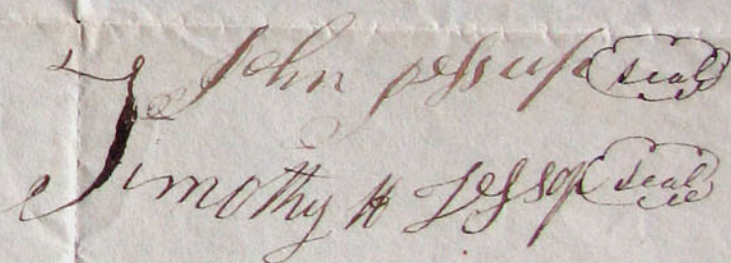 John Jessup seal
Timothy H Jessop seal